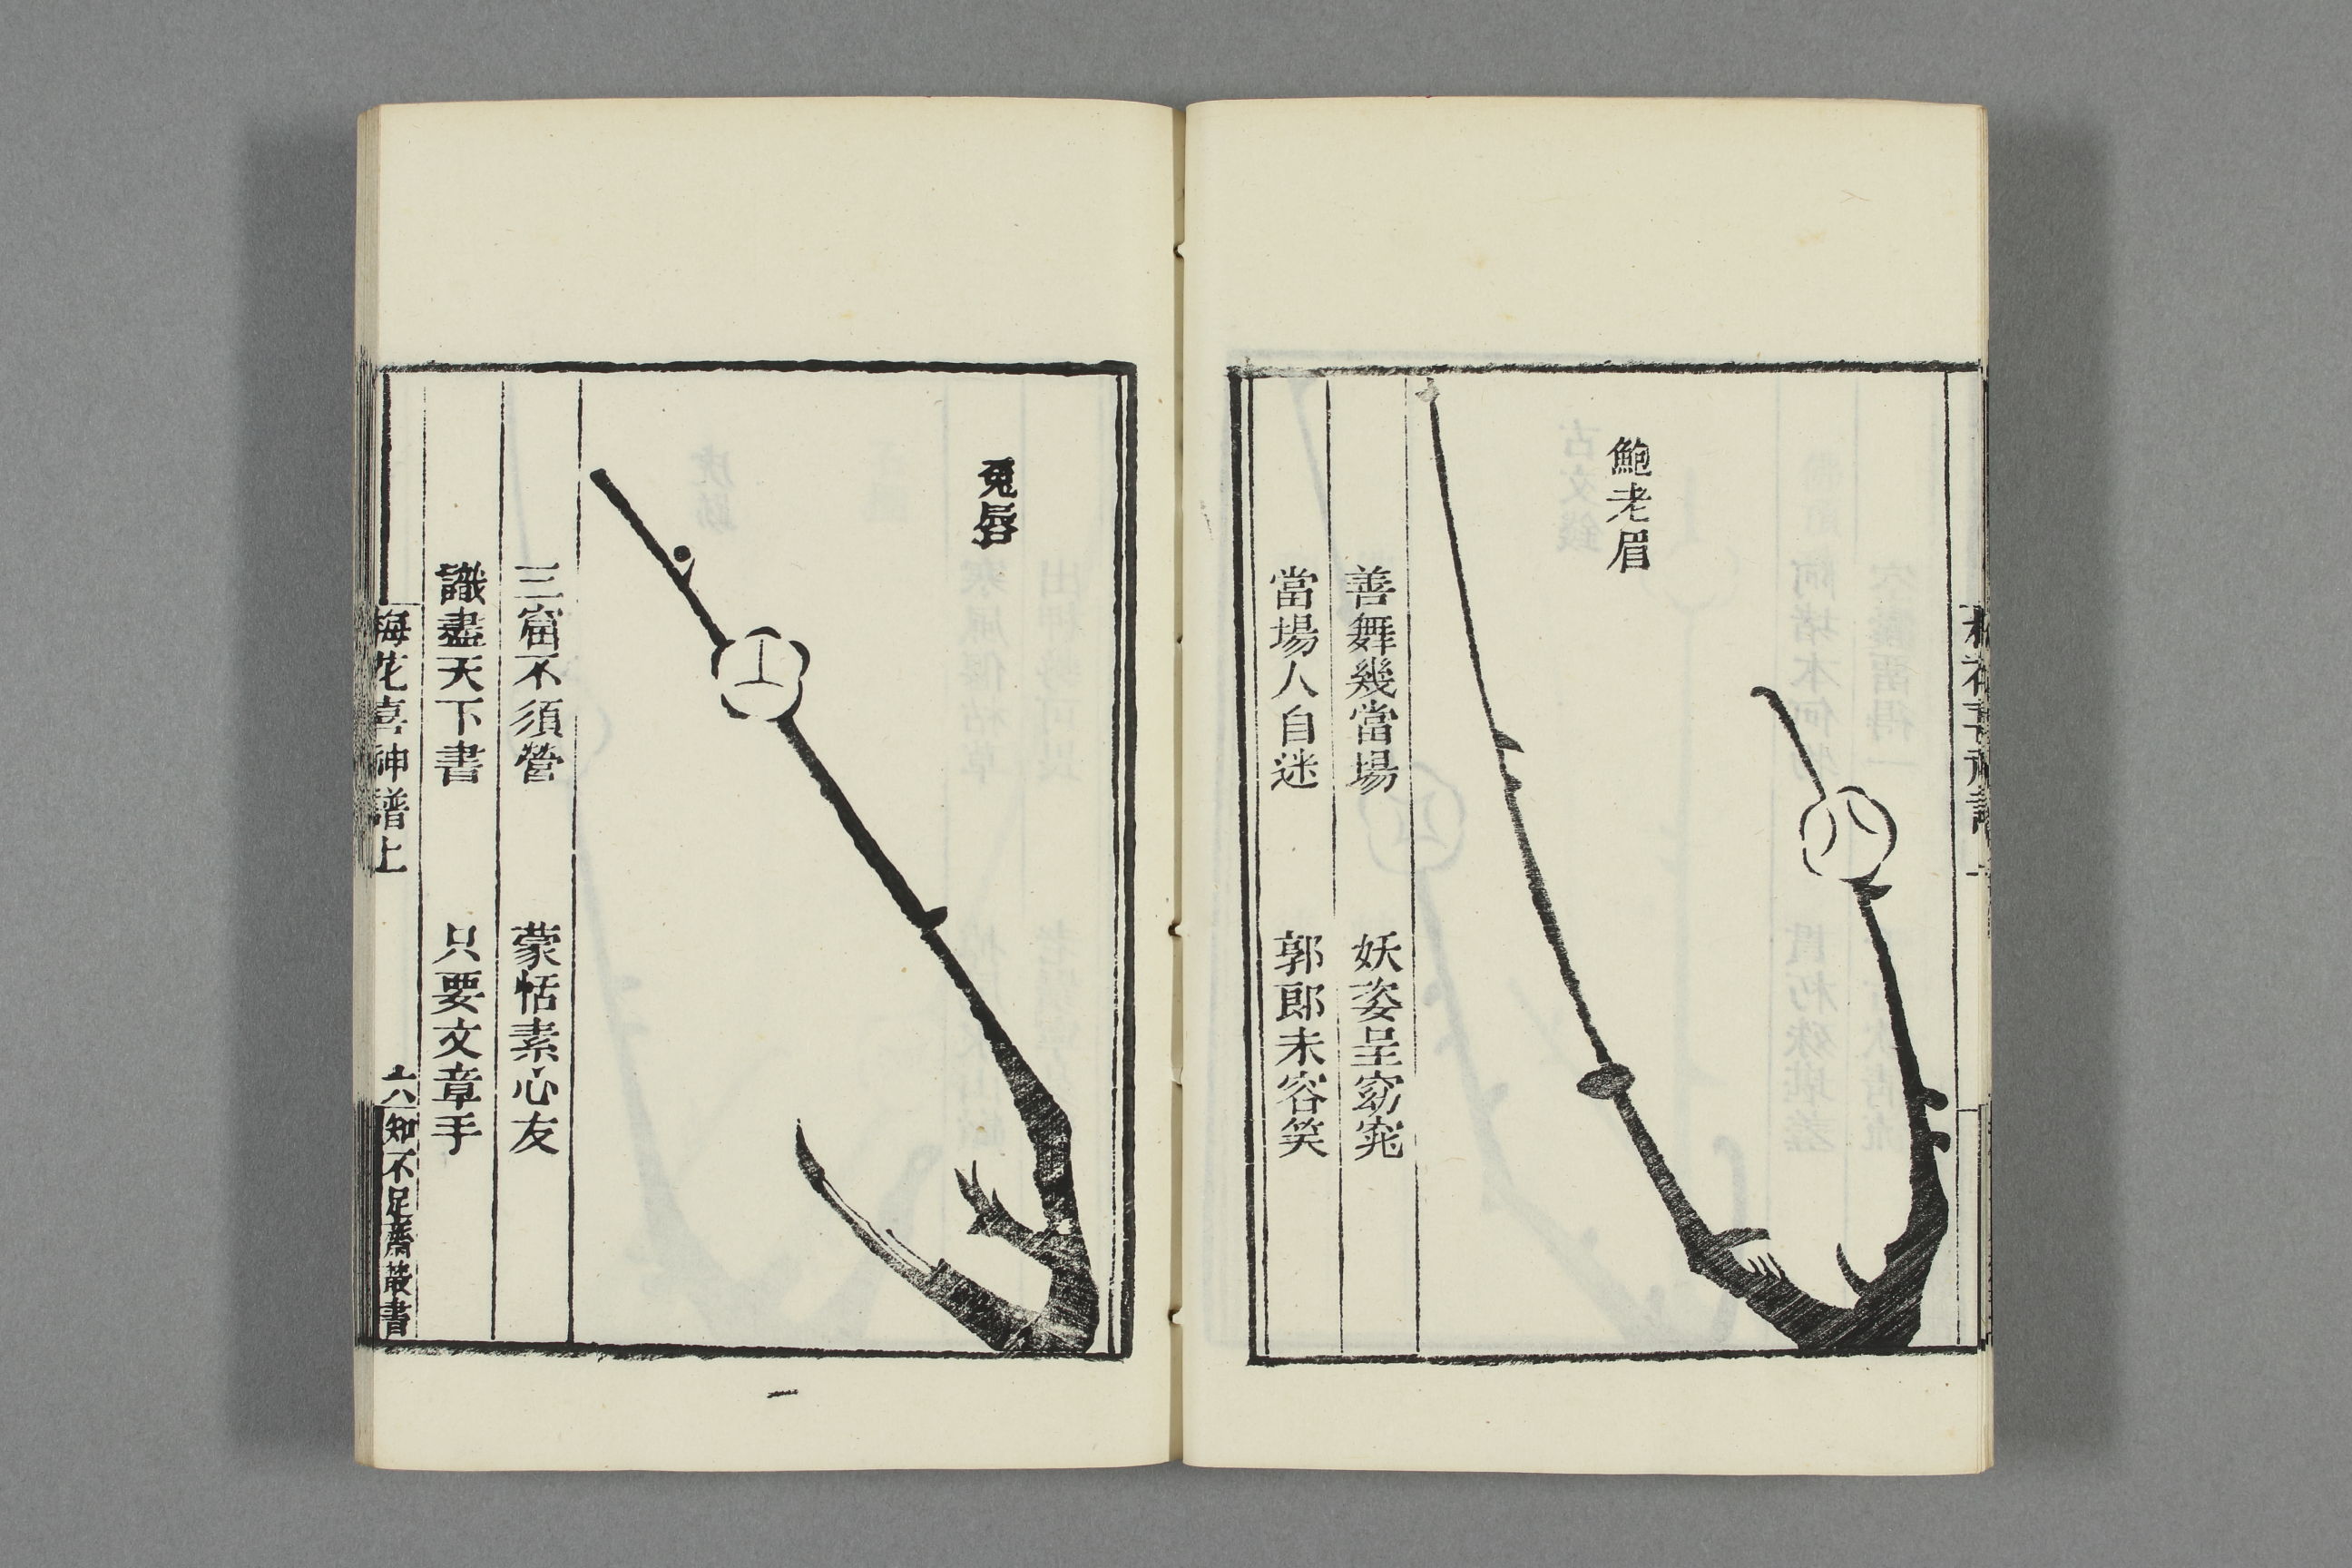 鮑老眉
善舞幾當場　妖姿呈窈窕
當場人自迷　郭郎未容笑
兔唇
三窟不須營　蒙恬素心友
識盡天下書　只要文章手
梅花喜神譜上
六
知不足齋叢書